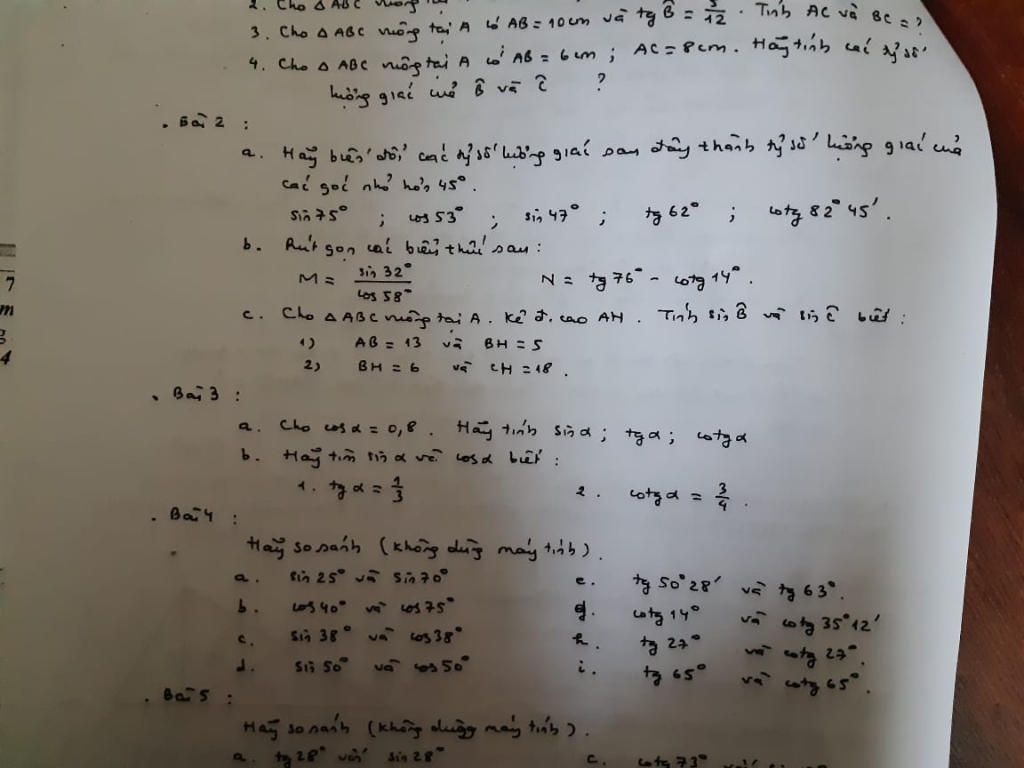 2. Cho △ ABC vuông tại
3. Cho △ ABC vuông tại A có AB = 10cm và tg B̂ = 5/12 . Tính AC và BC = ?
4. Cho △ ABC vuông tại A có AB = 6cm ; AC = 8cm . Hãy tính các tỷ số
lượng giác của B̂ và Ĉ ?
. Bài 2 :
a. Hãy biến đổi các tỷ số lượng giác sau đây thành tỷ số lượng giác của
các góc nhỏ hơn 45°.
sin 75° ; cos 53° ; sin 47° ; tg 62° ; cotg 82° 45' .
b. Rút gọn các biểu thức sau :
M = sin 32° / cos 58° N = tg 76° - cotg 14° .
c. Cho △ ABC vuông tại A . Kẻ đ. cao AH . Tính sin B̂ và sin Ĉ biết :
1) AB = 13 và BH = 5
2) BH = 6 và CH = 18 .
. Bài 3 :
a. Cho cos α = 0,8 . Hãy tính sin α ; tg α ; cotg α
b. Hãy tìm sin α và cos α biết :
1. tg α = 1/3 2. cotg α = 3/4 .
. Bài 4 :
Hãy so sánh (không dùng máy tính) .
a. sin 25° và sin 70° e. tg 50° 28' và tg 63° .
b. cos 40° và cos 75° g. cotg 14° và cotg 35° 12'
c. sin 38° và cos 38° h. tg 27° và cotg 27° .
d. sin 50° và cos 50° i. tg 65° và cotg 65° .
. Bài 5 :
Hãy so sánh (không dùng máy tính) .
a. tg 28° với sin 28° c. cotg 73°
7
m
g
4